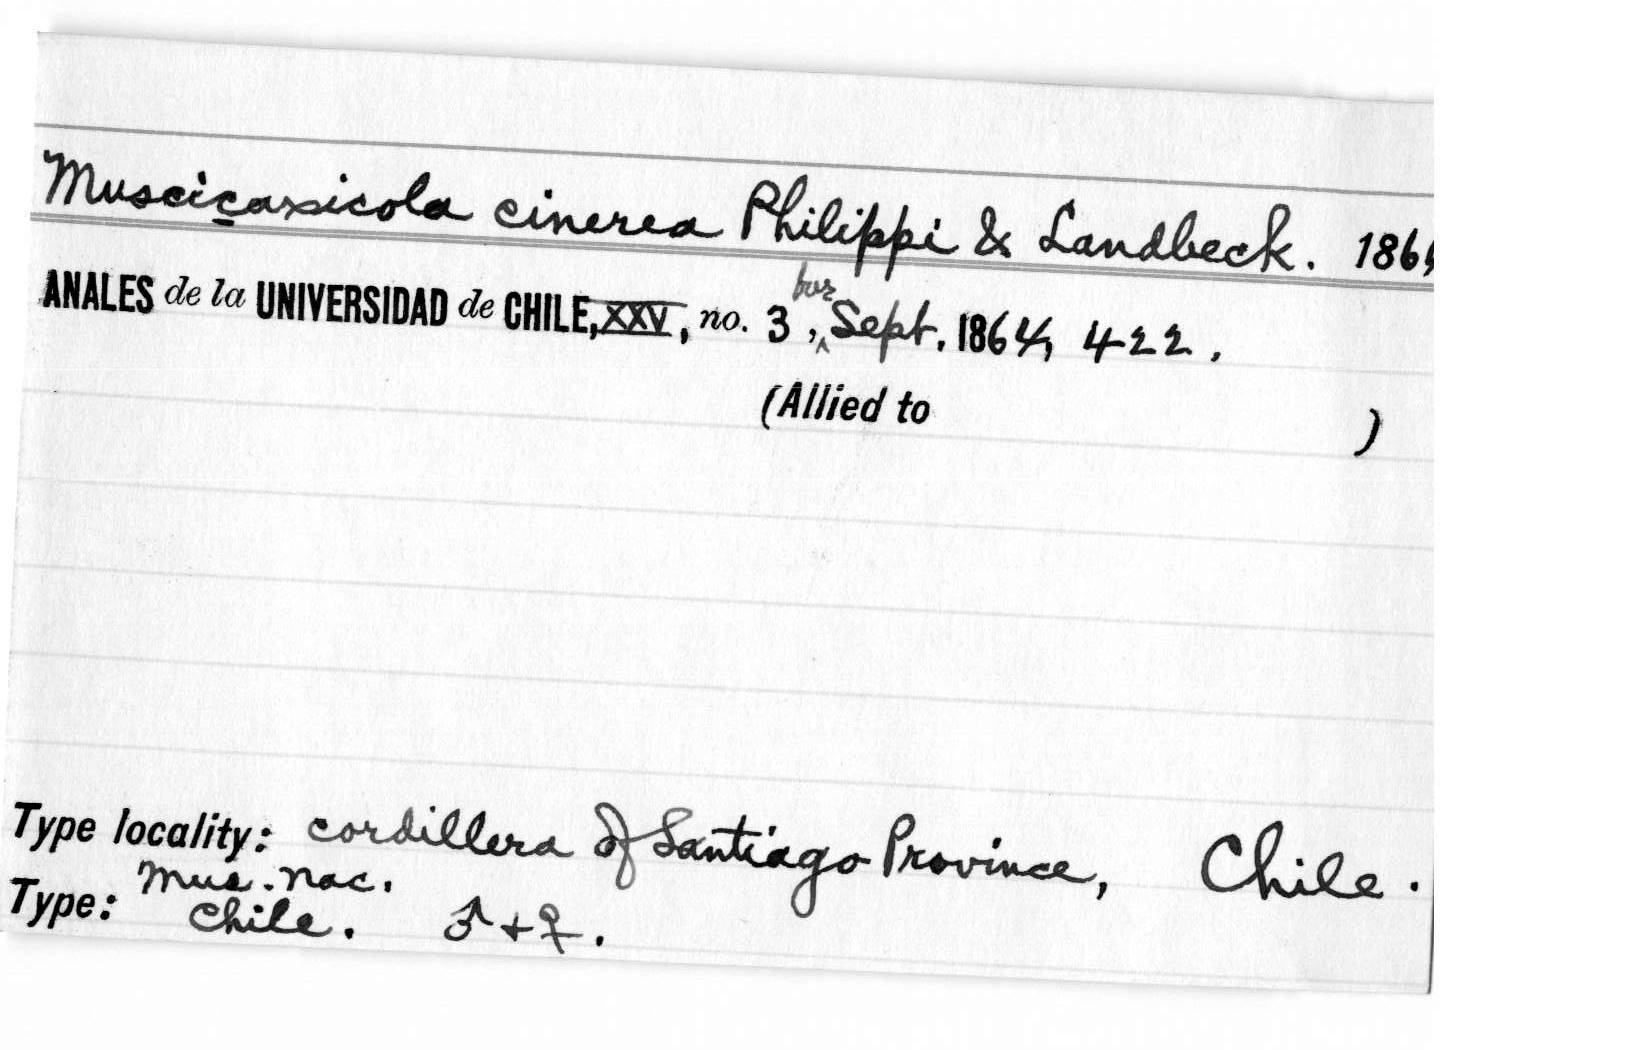 Muscicaxicola cinerea Philippi & Landbeck. 1864
ANALES de la UNIVERSIDAD de CHILE, XXV, no. 3, for Sept. 1864, 422.
(Allied to )
Type locality: cordillera of Santiago Province, Chile.
Type: Mus. nac.
Chile. ♂ + ♀.